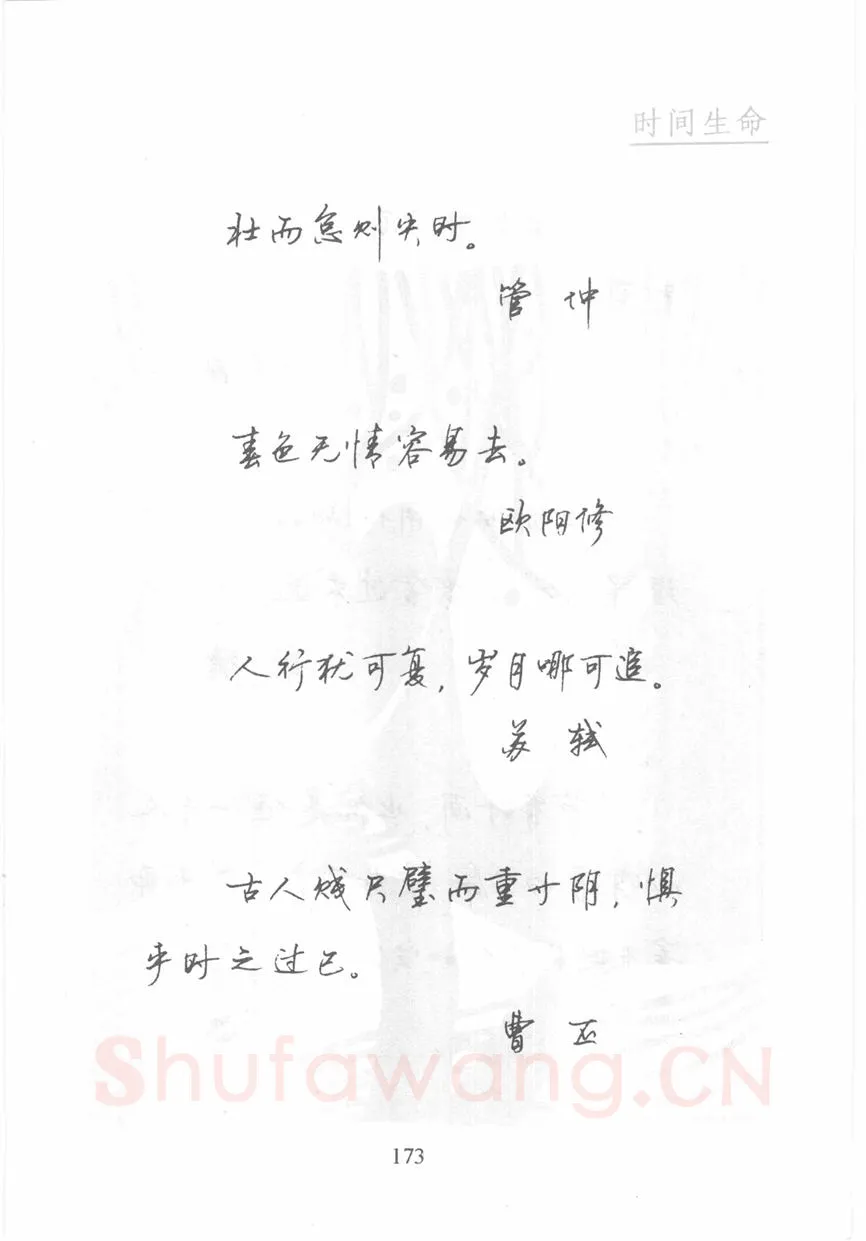 时间生命
壮而怠则失时。
管 仲
春色无情容易去。
欧阳修
人行犹可复，岁月哪可追。
苏 轼
古人贱尺璧而重寸阴，惧
乎时之过已。
曹 丕
Shufawang.CN
173